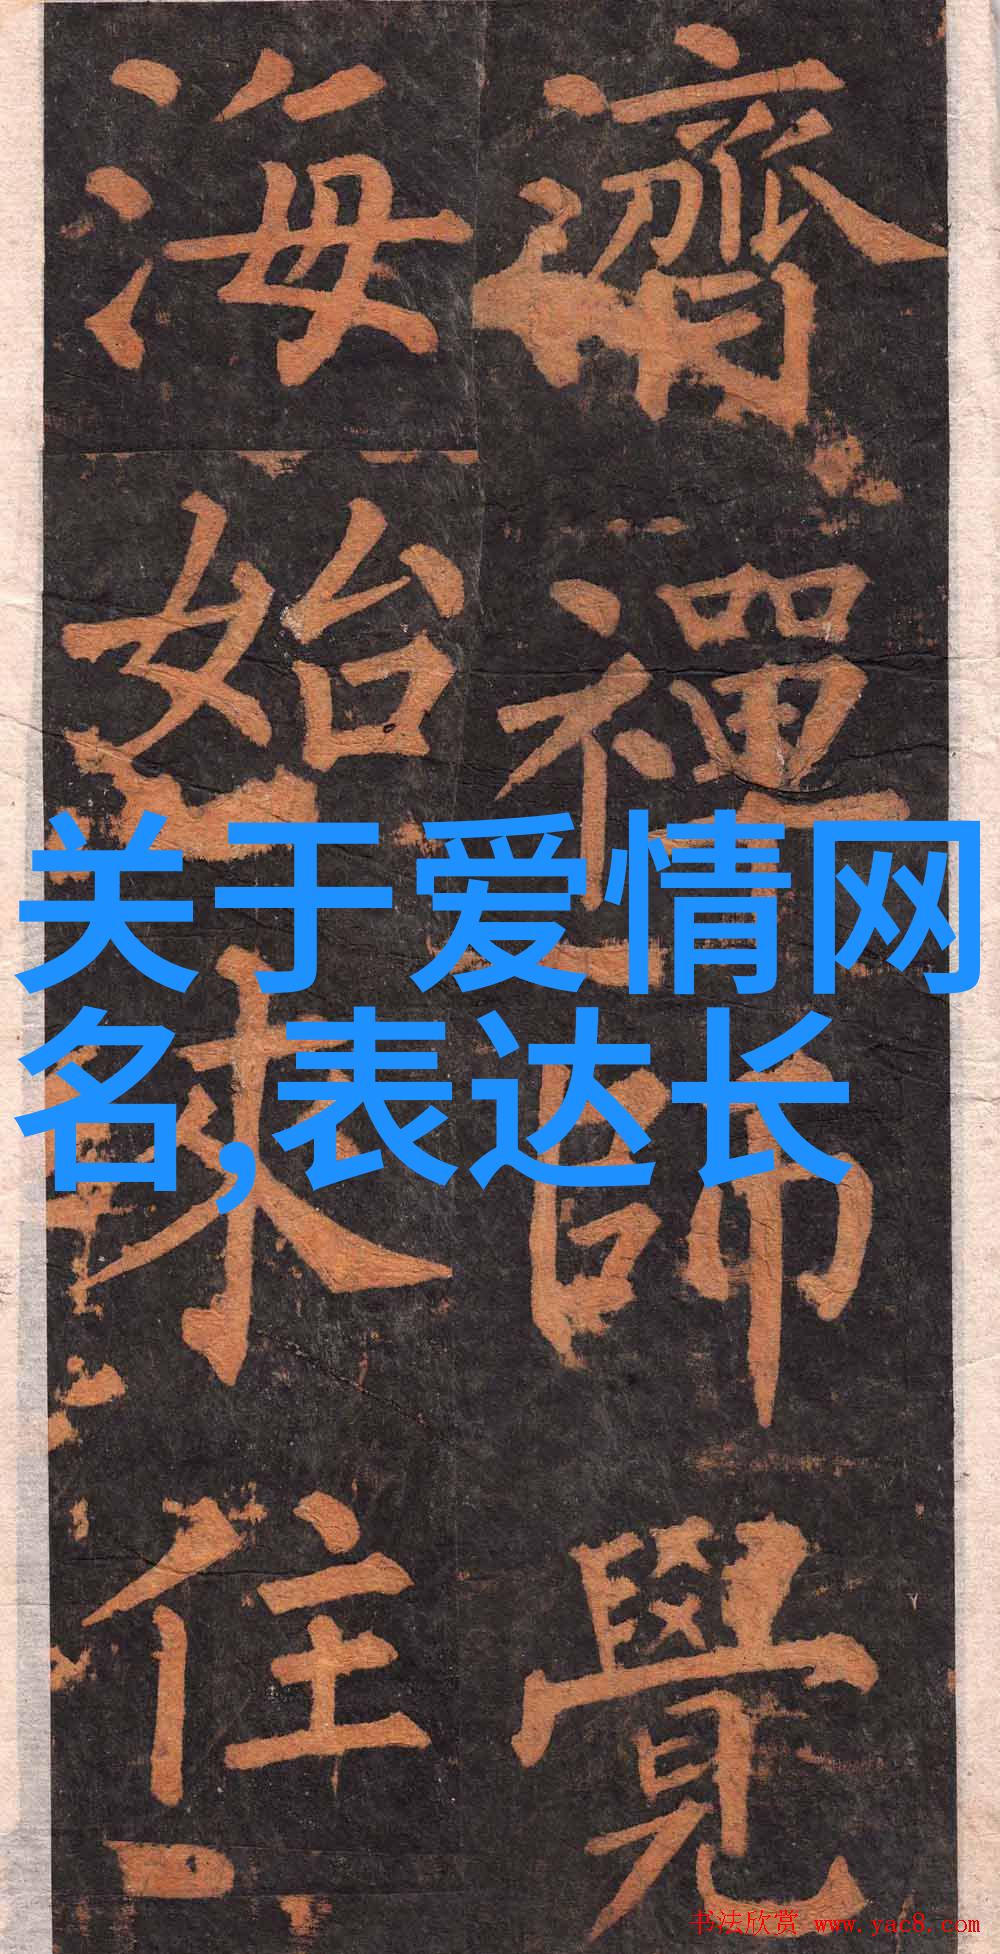 濟禪師覺
海始來住
关于爱情网
名,表达长
书法欣赏 www.yac8.com